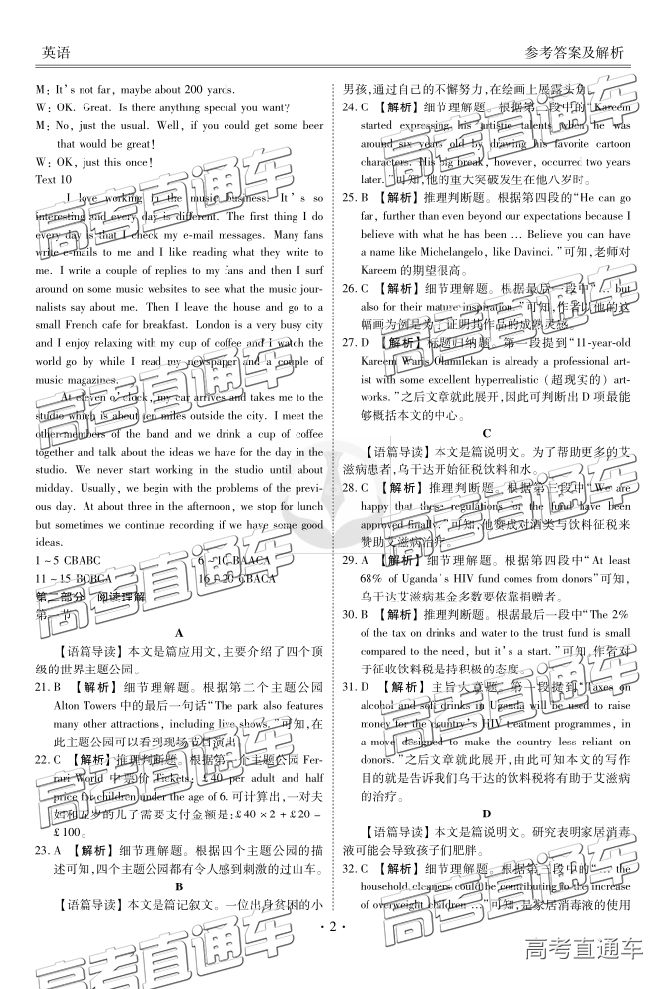 英语
参考答案及解析
M: It's not far, maybe about 200 yards.
W: OK. Great. Is there anything special you want?
M: No, just the usual. Well, if you could get some beer
that would be great!
W: OK, just this once!
Text 10
I love working in the music business. It's so
interesting and every day is different. The first thing I do
every day is that I check my e-mail messages. Many fans
write e-mails to me and I like reading what they write to
me. I write a couple of replies to my fans and then I surf
around on some music websites to see what the music jour-
nalists say about me. Then I leave the house and go to a
small French cafe for breakfast. London is a very busy city
and I enjoy relaxing with my cup of coffee and I watch the
world go by while I read my newspaper and a couple of
music magazines.
At eleven o'clock, my car arrives and takes me to the
studio which is about ten miles outside the city. I meet the
other members of the band and we drink a cup of coffee
together and talk about the ideas we have for the day in the
studio. We never start working in the studio until about
midday. Usually, we begin with the problems of the previ-
ous day. At about three in the afternoon, we stop for lunch
but sometimes we continue recording if we have some good
ideas.
1～5 CBABC 6～10 BAACA
11～15 BCBCA 16～20 CBACA
第二部分 阅读理解
第一节
A
【语篇导读】本文是篇应用文,主要介绍了四个顶
级的世界主题公园。
21. B 【解析】细节理解题。根据第二个主题公园
Alton Towers 中的最后一句话“The park also features
many other attractions, including live shows.”可知,在
此主题公园可以看到现场节目演出。
22. C 【解析】推理判断题。根据第一个主题公园 Fer-
rari World 中票价 Tickets: £40 per adult and half
price for children under the age of 6. 可计算出,一对夫
妇和五岁的儿子需要支付金额是:£40×2+£20=
£100。
23. A 【解析】细节理解题。根据四个主题公园的描
述可知,四个主题公园都有令人感到刺激的过山车。
B
【语篇导读】本文是篇记叙文。一位出身贫困的小
男孩,通过自己的不懈努力,在绘画上展露头角。
24. C 【解析】细节理解题。根据第二段中的“Kareem
started expressing his artistic talents when he was
around six years old by drawing his favorite cartoon
characters. His big break, however, occurred two years
later.”可知,他的重大突破发生在他八岁时。
25. B 【解析】推理判断题。根据第四段的“He can go
far, further than even beyond our expectations because I
believe with what he has been … Believe you can have
a name like Michelangelo, like Davinci.”可知,老师对
Kareem 的期望很高。
26. C 【解析】细节理解题。根据最后一段中“… but
also for their mature inspiration.”可知,作者以他的这
幅画为例是为了证明其作品的成熟灵感。
27. D 【解析】标题归纳题。第一段提到“11-year-old
Kareem Waris Olamilekan is already a professional art-
ist with some excellent hyperrealistic (超现实的) art-
works.”之后文章就此展开,因此可判断出 D 项最能
够概括本文的中心。
C
【语篇导读】本文是篇说明文。为了帮助更多的艾
滋病患者,乌干达开始征税饮料和水。
28. C 【解析】推理判断题。根据第三段中“We are
happy that these regulations of the fund have been
approved finally.”可知,他赞成对酒类与饮料征税来
赞助艾滋病治疗。
29. A 【解析】细节理解题。根据第四段中“At least
68% of Uganda's HIV fund comes from donors”可知,
乌干达艾滋病基金多数要依靠捐赠者。
30. B 【解析】推理判断题。根据最后一段中“The 2%
of the tax on drinks and water to the trust fund is small
compared to the need, but it's a start.”可知,作者对
于征收饮料税是持积极的态度。
31. D 【解析】主旨大意题。第一段提到“Taxes on
alcohol and soft drinks in Uganda will be used to raise
money for the country's HIV treatment programmes, in
a move designed to make the country less reliant on
donors.”之后文章就此展开,由此可知本文的写作
目的就是告诉我们乌干达的饮料税将有助于艾滋病
的治疗。
D
【语篇导读】本文是篇说明文。研究表明家居消毒
液可能会导致孩子们肥胖。
32. C 【解析】细节理解题。根据第三段中的“… the
household cleaners could be contributing to the increase
of overweight children …”可知,是家居消毒液的使用
·2·
高考直通车